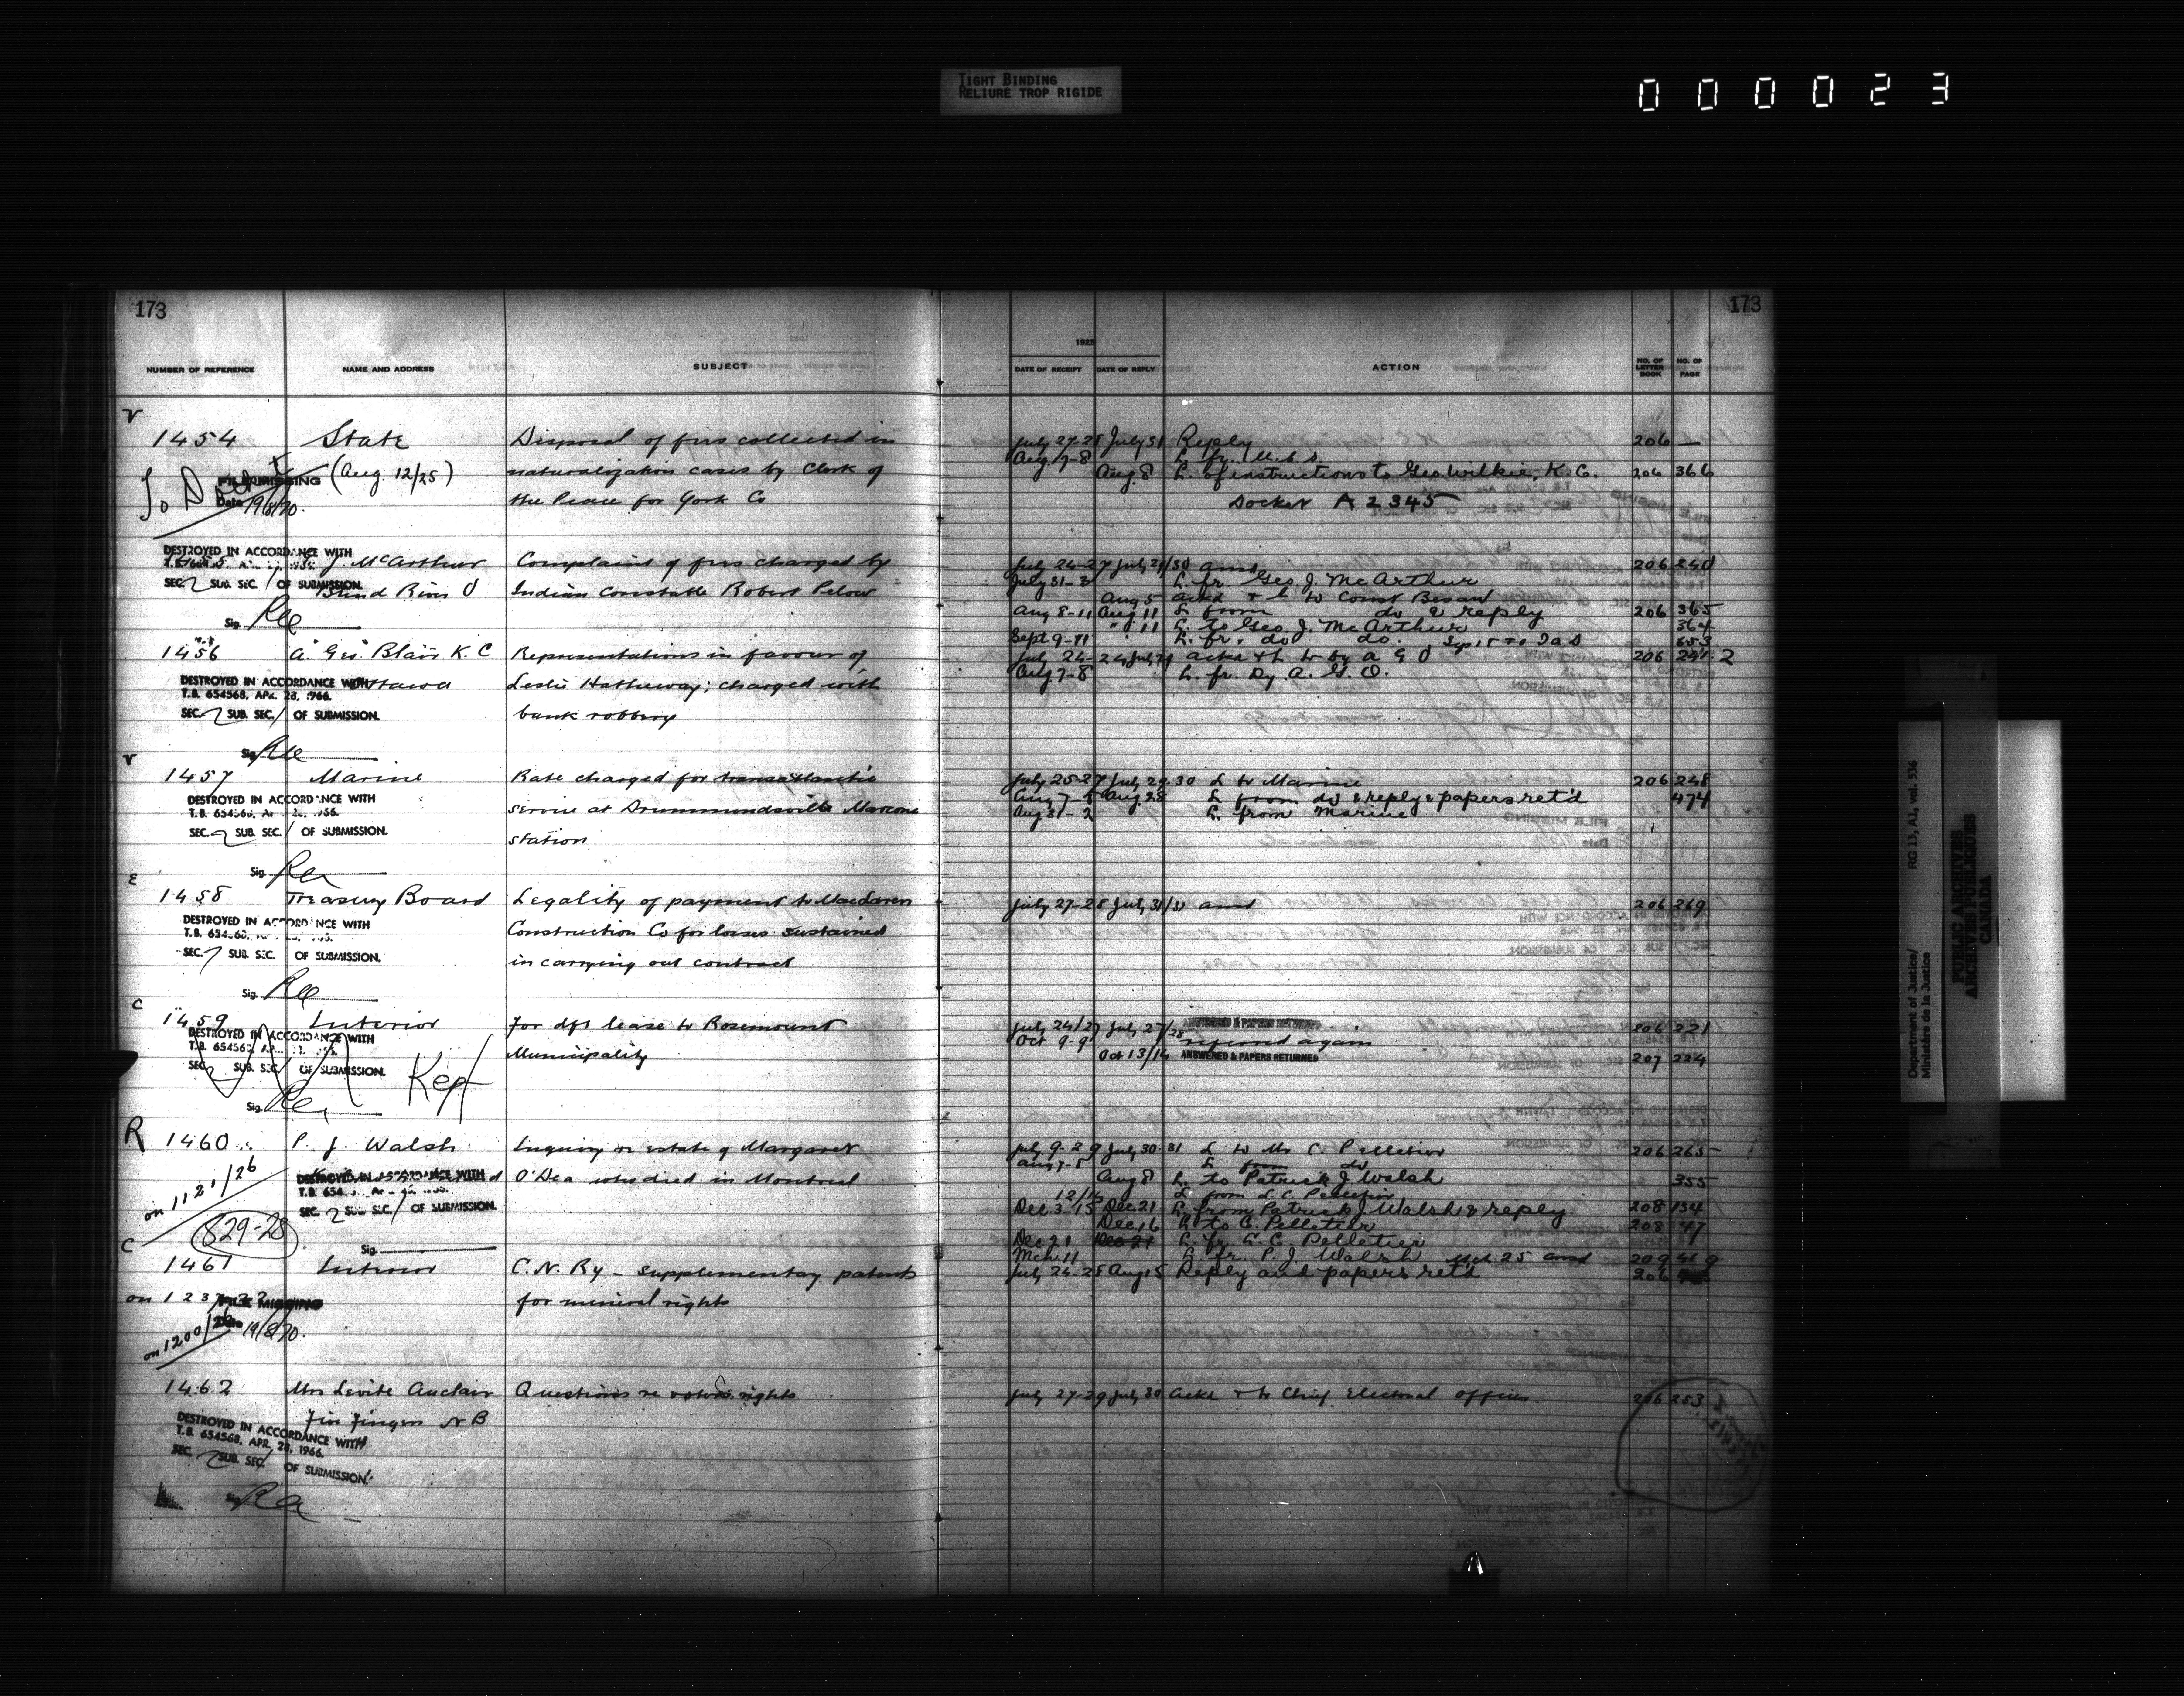 TIGHT BINDING
RELIURE TROP RIGIDE
000023
173
173
1925
NUMBER OF REFERENCE NAME AND ADDRESS SUBJECT DATE OF RECEIPT DATE OF REPLY ACTION NO. OF LETTER BOOK NO. OF PAGE
V
1454 State Disposal of fees collected in July 27-28 July 31 Reply 206 —
Aug. 7-8 L. fr. U.S.S.
FILE MISSING (Aug. 12/25) naturalization cases by Clerk of Aug. 8 L. of instructions to Geo Wilkie, K.C. 206 366
Date 19/8/70. the Peace for York Co Docket A 2345
To
DESTROYED IN ACCORDANCE WITH
J. McArthur Complaint of fees charged by July 24-27 July 29/30 ansd 206 240
SEC. 2 SUB. SEC. / OF SUBMISSION.
Blind River O Indian Constable Robert Pelow July 31-3 L. fr. Geo. J. McArthur
Aug 5 ackd & L to Const Besaw
Aug 8-11 Aug 11 L from do & reply 206 365
Sig.
" 11 L. to Geo. J. McArthur 364
Sept 9-11 L. fr. do do. 653
1456 A. Geo. Blair K.C Representations in favour of July 24-24 ackd & L to by A G O 206 241-2
Ottawa Leslie Hatheway; charged with Aug. 7-8 L. fr. Dy. A. G. O.
DESTROYED IN ACCORDANCE WITH
T.B. 654568, APR. 28, 1966.
SEC. 2 SUB. SEC. / OF SUBMISSION. bank robbery
Sig.
V
1457 Marine Rate charged for transatlantic July 25-27 July 29-30 L to Marine 206 248
DESTROYED IN ACCORDANCE WITH
service at Drummondsville Marconi Aug 7-8 Aug 28 L from do & reply & papers ret'd 474
Aug 31-2 L. from Marine
SEC. 2 SUB. SEC. / OF SUBMISSION. station
Sig.
E
1458 Treasury Board Legality of payment to MacLaren July 27-28 July 31/31 ansd 206 269
DESTROYED IN ACCORDANCE WITH
Construction Co for losses sustained
SEC. SUB. SEC. OF SUBMISSION. in carrying out contract
Sig.
C
1459 Interior for dft lease to Rosemount July 24/27 July 27/28 ANSWERED & PAPERS RETURNED 206 221
DESTROYED IN ACCORDANCE WITH
Oct 9-9 referred again
Municipality Oct 13/14 ANSWERED & PAPERS RETURNED 207 224
SEC. SUB. SEC. OF SUBMISSION. Kept
Sig.
R 1460 P. J. Walsh Inquiry re estate of Margaret July 9-29 July 30-31 L to Mr C. Pelletier 206 265
Aug 7-8 L from do
on 1121/26 DESTROYED IN ACCORDANCE WITH O'Dea who died in Montreal Aug 8 L. to Patrick J. Walsh 355
SEC. 2 SUB SEC. / OF SUBMISSION.
12/14 L from L C Pelletier
829-28 Dec. 3-15 Dec. 21 L. from Patrick J. Walsh & reply 208 134
Dec. 16 L to C. Pelletier 208 47
Sig.
Dec 21 L. fr. L. C. Pelletier
Mch 11 L. fr. P. J. Walsh Mch. 25 ansd 209 419
C
1461 Interior C.N. Ry – supplementary patents July 24-25 Aug 15 Reply and papers ret'd 206
FILE MISSING for mineral rights
on 1200/26 Date 19/8/70.
1462 Mrs Levite Auclair Questions re voters rights July 27-29 July 30 Ackd & to Chief Electoral officer 206 253
Five Fingers N B
DESTROYED IN ACCORDANCE WITH
T.B. 654568, APR. 28, 1966.
SEC. 2 SUB. SEC. / OF SUBMISSION.
Department of Justice/
Ministère de la Justice
RG 13, A1, vol. 536
PUBLIC ARCHIVES
ARCHIVES PUBLIQUES
CANADA